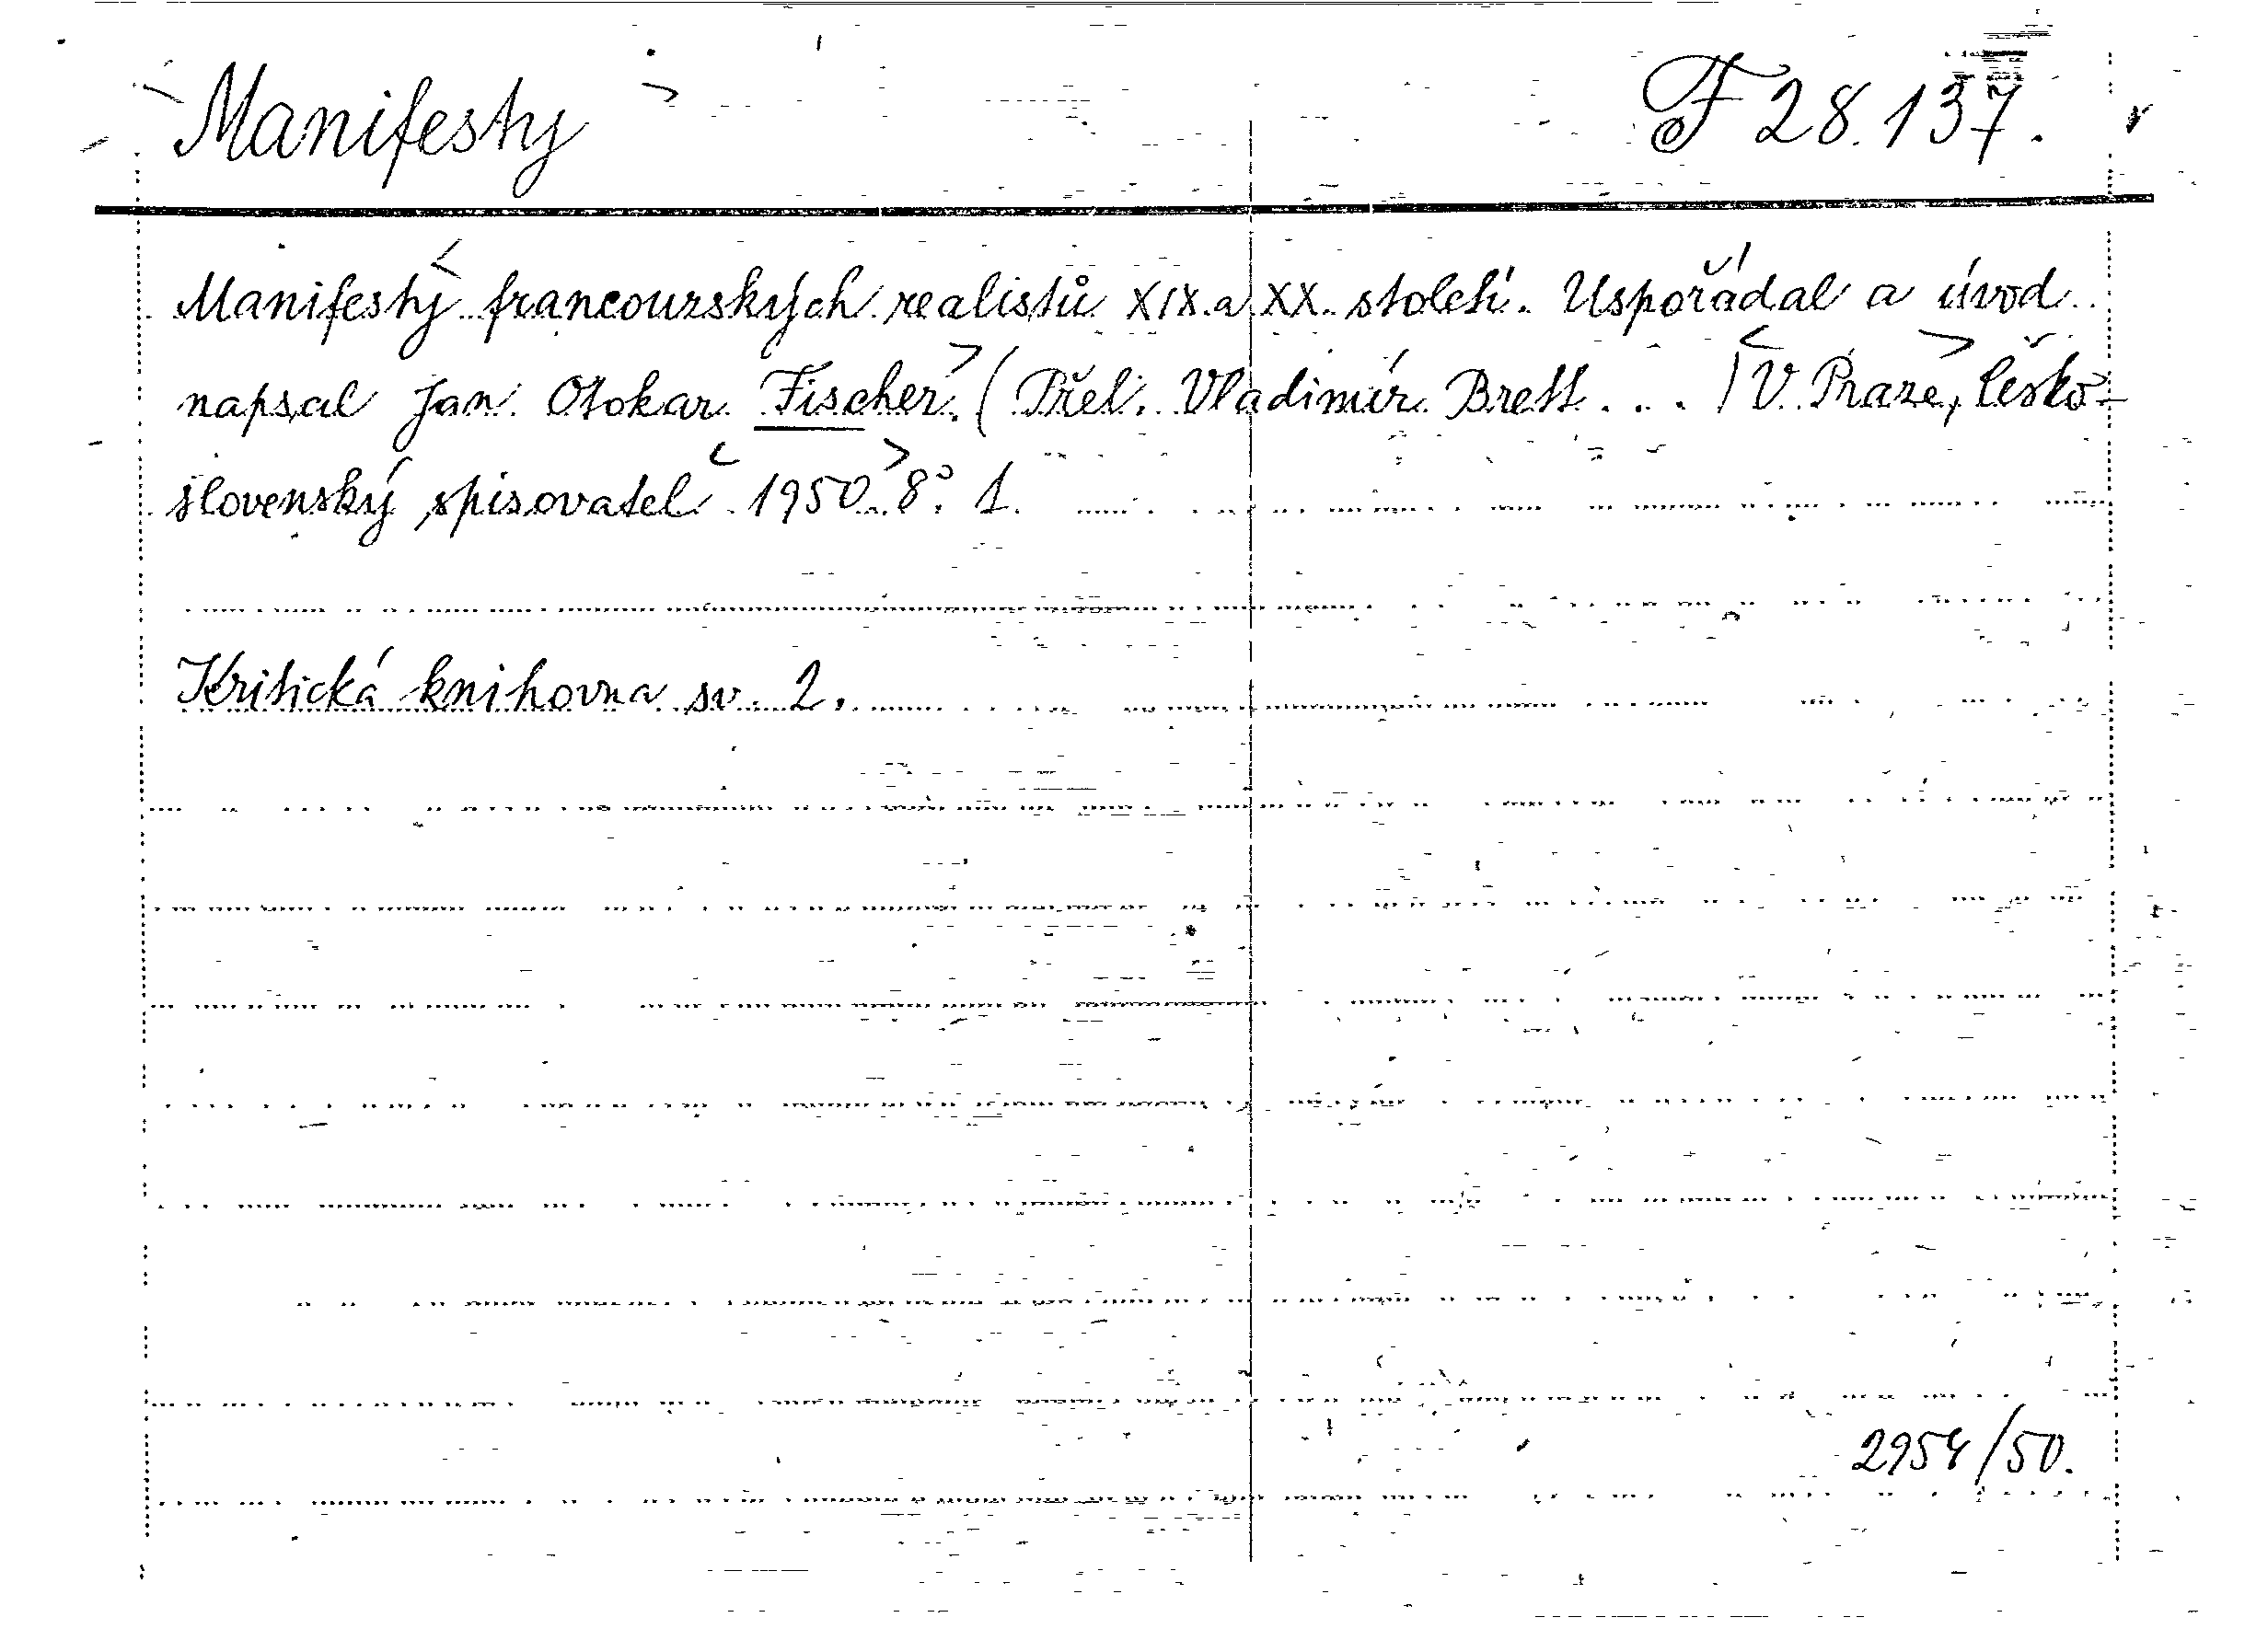 Manifesty F 28.137.
Manifesty francouzských realistů XIX. a XX. století. Uspořádal a úvod
napsal Jan Otokar Fischer. (Přel. Vladimír Brett . . . ) V Praze, Česko-
slovenský spisovatel 1950. 8° 1.
Kritická knihovna sv. 2.
2954/50.